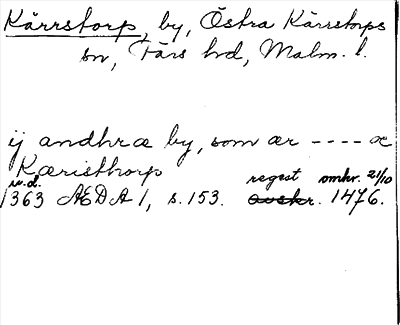 Kärrstorp, by, Östra Kärrstorps
sn, Färs hd, Malm. l.
ij andhræ by, som ær ---- æ
Kæristhorp
u.d. regest omkr. 21/10
1363 ÆDA 1, s. 153. avskr. 1476.